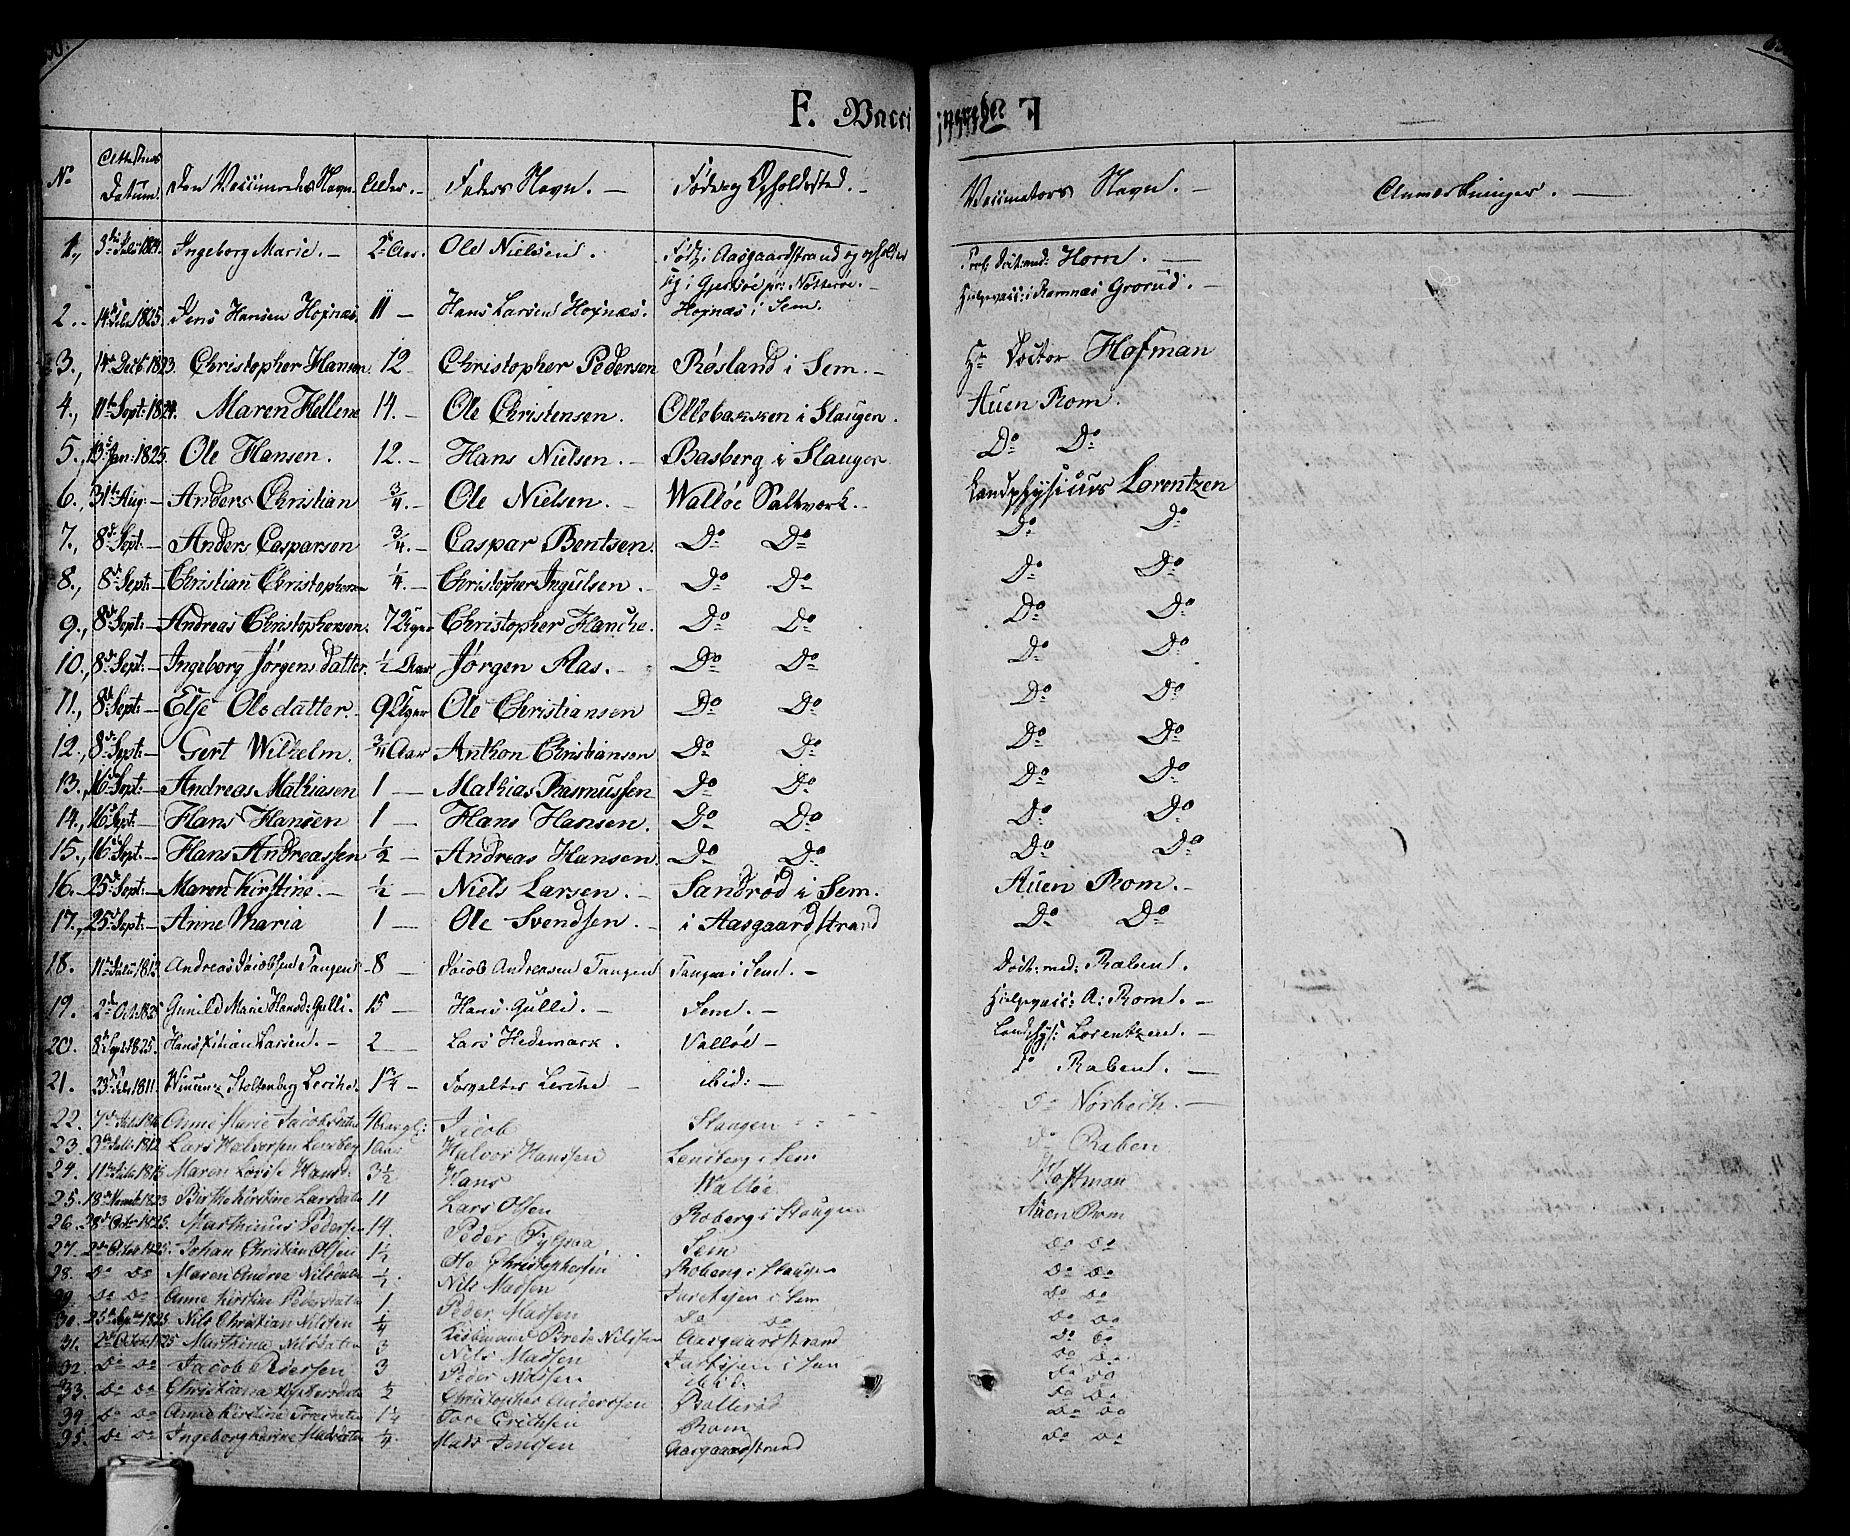 F. Vacci
No Attestens Datum. Den Vaccineredes Navn. Alder. — Faders Navn. — Føde og Opholdssted. — Vaccinators Navn. — Anmerkninger. —
1., 3die Julii 1824. Ingeborg Marie. — 2 Aar. — Ole Nielsen. Født i Aasgaardstrand og opholder Prof: Doct: med: Horn. —
sig i Gjerløe pr: Nøtterøe. —
2. 14de 1825. Jens Hansen Hoxnæs. 11 — Hans Larsen Hoxnæs. Hoxnæs i Sem. Hielpevacc: i Ramnæs Grorud. —
3., 14de Decb. 1823. Christopher Hansen 12 Christopher Pedersen Røsland i Sem. — Hr Doctor Hofman
4., 11te Sept: 1824. Maren Hellene 14. — Ole Christensen. Ollebakken i Slaugen. Auen Rom.
5., 13de Jan: 1825. Ole Hansen. 12. — Hans Nielsen. — Basberg i Slaugen. Do Do
6., 31te Aug: — Anders Christian 3/4. — Ole Nielsen. — Walløe Saltverk. — Landphysicus Lorentzen
7., 8de Sept: — Anders Casparsen 3/4. — Caspar Bentsen. Do Do Do Do
8., 8de Sept: — Christian Christophersen 1/4. — Christopher Ingulsen. — Do Do Do Do
9., 8de Sept: — Andreas Christophersen. 7 Uger Christopher Hanche. Do Do Do Do
10., 8de Sept: — Ingeborg Jørgensdatter. 1/2 Aar Jørgen Aas. — Do Do Do Do
11., 8de Sept: — Else Olsdatter. — 9 Uger Ole Christiansen Do Do Do Do
12., 8de Sept: — Gert Wilhelm. Aar Anthon Christiansen Do Do Do Do
13., 16de Sept: — Andreas Mathiasen 1 — Mathias Rasmussen Do Do Do Do
14., 16de Sept: — Hans Hansen 1 — Hans Hansen. Do Do Do Do
15., 16de Sept: — Hans Andreassen 1/2 — Andreas Hansen. Do Do Do Do
16. 25de Sept: — Maren Kirstine. — 1/2 — Niels Larsen. — Sandrød i Sem. Auen Rom. —
17., 25de Sept: — Anne Maria 1 — Ole Svendsen. — i Aasgaardstrand Do Do
18. 11te Julii Andreas Jacobsen Tangen 8 — Jacob Andreasen Tangen Tangen i Sem. — Doct: med: Raben.
19. 2den Oct: 1825 Gunild Marie Hansd: Gulli. 15 — Hans Gulli. — Sem. — Hielpevacc: A: Rom. —
20. 8de Sept: 1825. Hans Kilian Larsen. — 2 — Lars Hedemark. Walløe — Landphys: Lorentzen. —
21. 23de 1811. Stoltenberg Lerche. 1 3/4 — Forvalter Lerche — ibid: — Do Raben. —
22. 7de Anne Marie Jacobsdatter 4 Jacob Slaugen Do Norbech. —
23. 3die Julii 1812 Lars Halvorsen Lensberg Halvor Hanssen Lensberg i Sem Do Raben
24. 11te Maren Lovise Hansd: 3 1/2 Hans Walløe Hoffman
25. 18de Novemb 1823 Birthe Kirstine Larsdatter 11 Lars Olsen Roberg i Slaugen Auen Rom
26. 2den Octor 1825. Marthinus Pedersen 14. Peder Sem Do Do
27. 2den Octob 1825. Johan Christian Olsen 1 1/2 Ole Christophersen Roberg i Slaugen Do Do
28. Do Do Maren Andrea Nilsdatter 1/2. Nils Madsen i Sem Do Do
29. Do Do Anne Kirstine Pedersdatter 1. Peder Madsen Do Do Do Do
30. 25de 1825 Nils Christian Nilssen 1/4 Brede Nilssen Aasgaardstrand Do Do
31. 2den Octob 1825 Marthina Nilsdatter 3 Nils Madsen i Sem Do Do
32. Do Do Jacob Pedersen 3 Peder Nilssen ibid. Do Do
33. Do Do Christiana 1/2 Christopher Anderssen Do Do
34. Do Do Anne Kirstine 1 1/4 Tore Erichsen Rom Do Do
35. Do Do Ingeborg Madsdatter 1/4. Mads Jenssen Aasgaardstrand Do Do